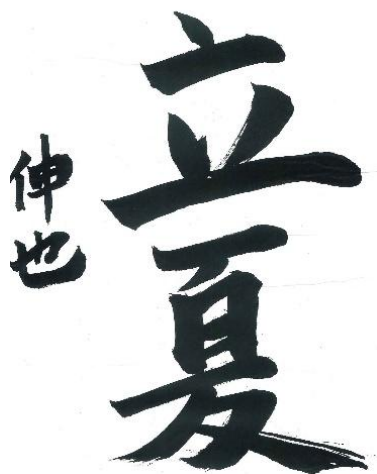 立夏
伸也